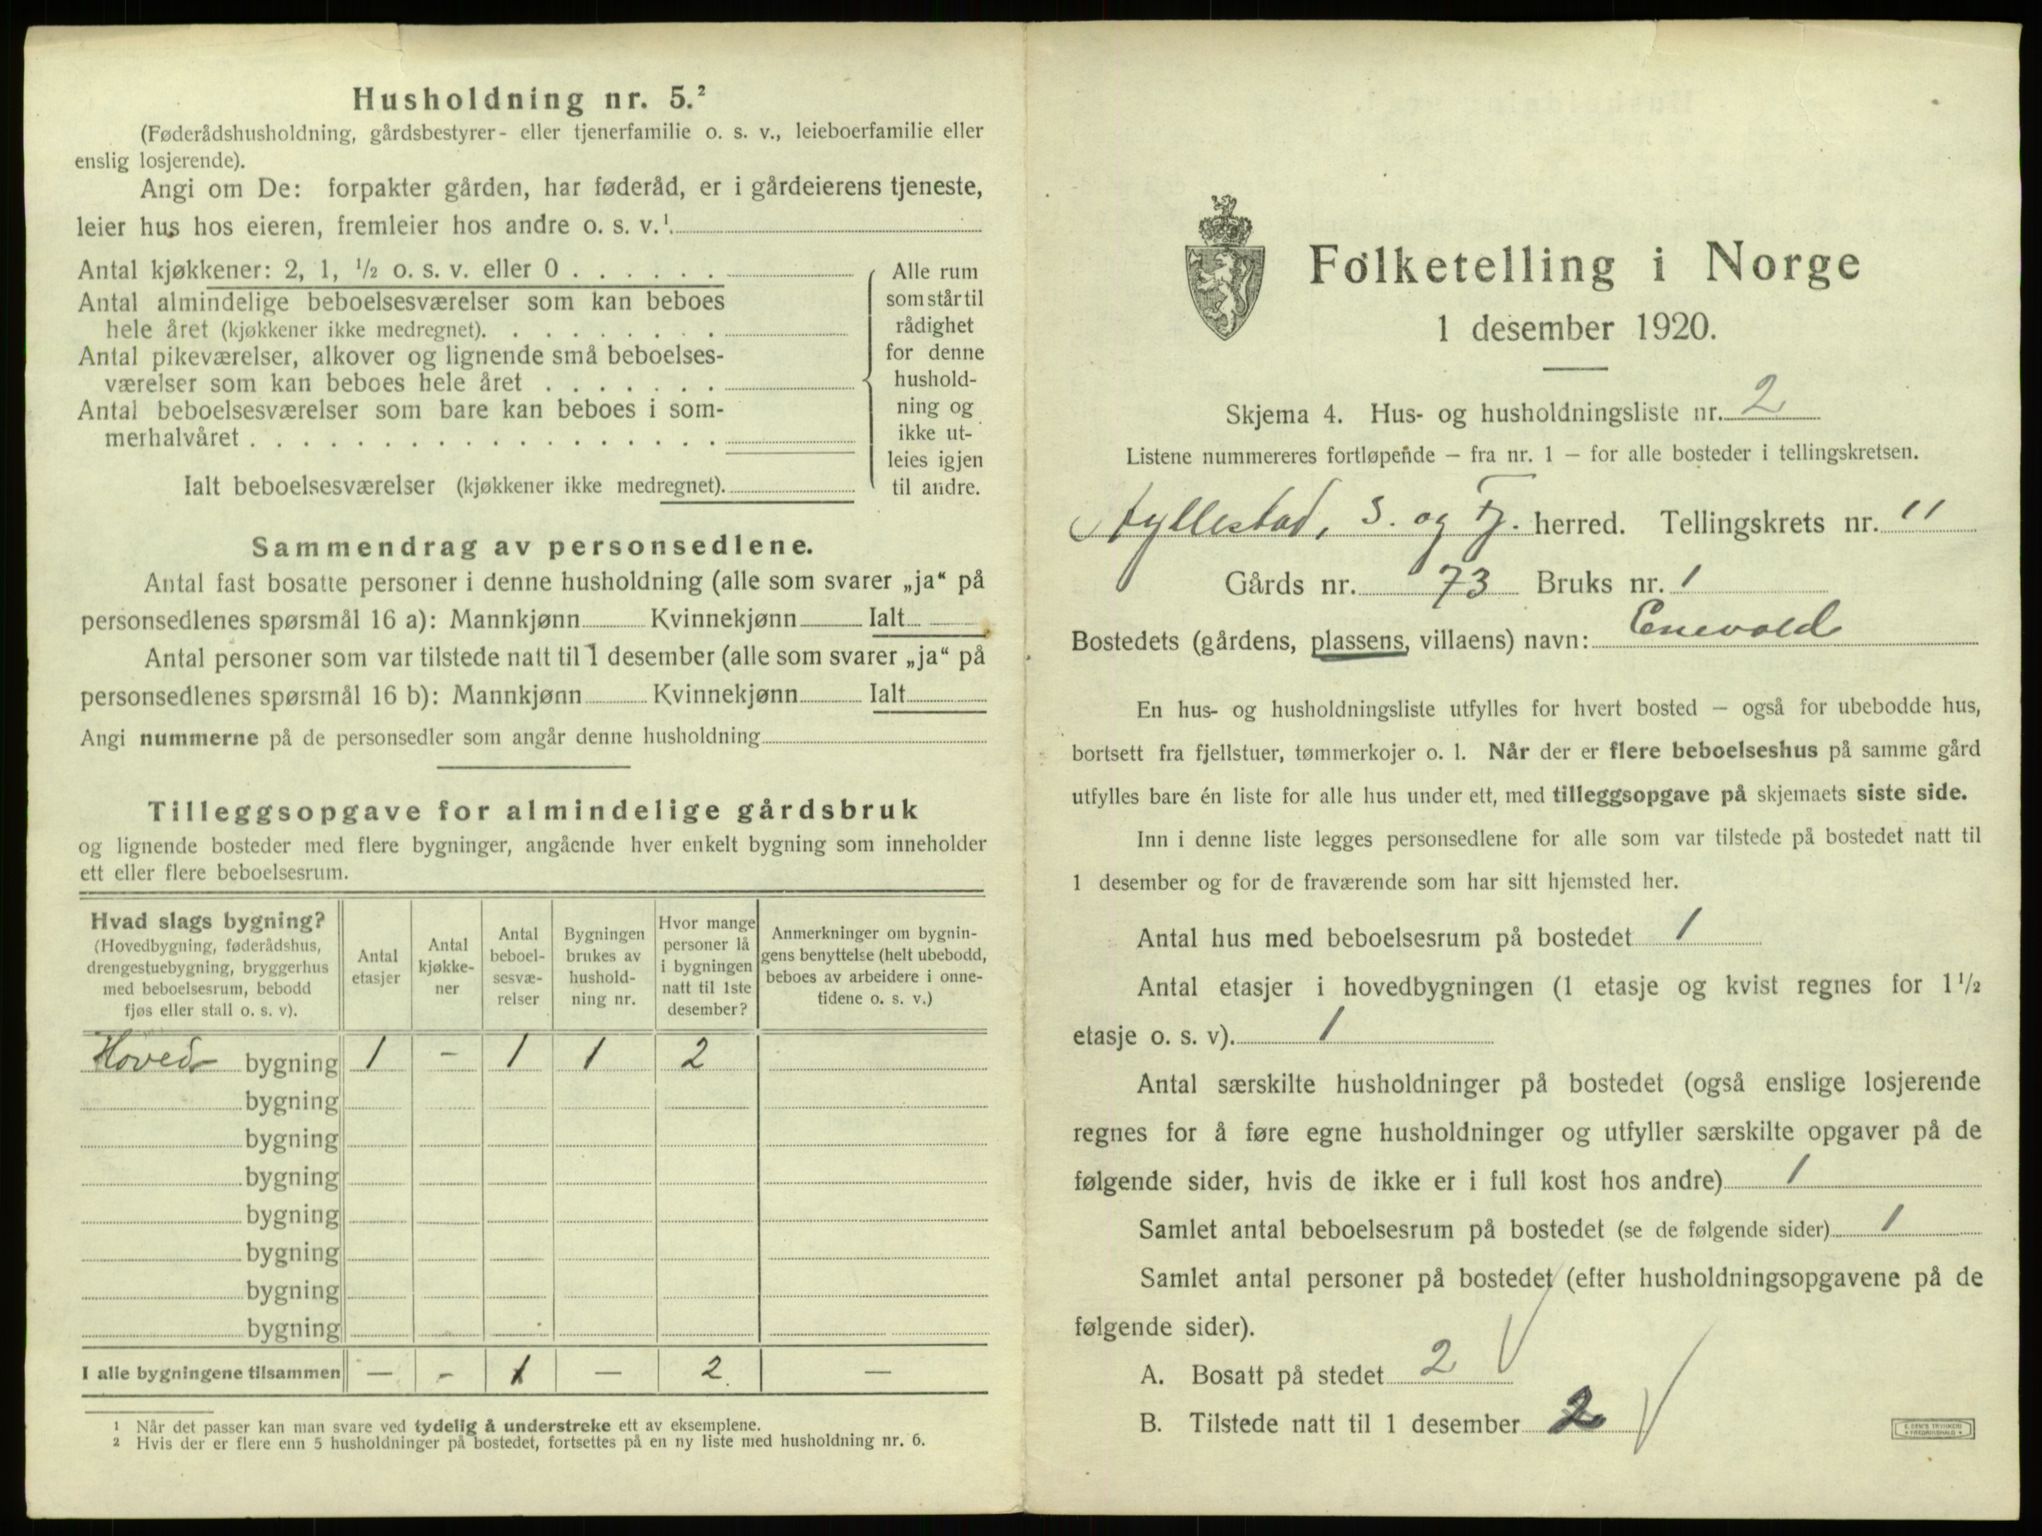 Husholdning nr. 5.²
(Føderådshusholdning, gårdsbestyrer- eller tjenerfamilie o. s. v., leieboerfamilie eller
enslig losjerende).
Angi om De: forpakter gården, har føderåd, er i gårdeierens tjeneste,
leier hus hos eieren, fremleier hos andre o. s. v.¹.
Antal kjøkkener: 2, 1, ½ o. s. v. eller 0 . . . . . .
Antal almindelige beboelsesværelser som kan beboes
hele året (kjøkkener ikke medregnet). . . . . . . . .
Antal pikeværelser, alkover og lignende små beboelses-
værelser som kan beboes hele året . . . . . . .
Antal beboelsesværelser som bare kan beboes i som-
merhalvåret . . . . . . . . . . . . . . . . . .
Ialt beboelsesværelser (kjøkkener ikke medregnet).
Alle rum
som står til
rådighet
for denne
hushold-
ning og
ikke ut-
leies igjen
til andre.
Sammendrag av personsedlene.
Antal fast bosatte personer i denne husholdning (alle som svarer „ja“ på
personsedlenes spørsmål 16 a): Mannkjønn Kvinnekjønn Ialt
Antal personer som var tilstede natt til 1 desember (alle som svarer „ja“ på
personsedlenes spørsmål 16 b): Mannkjønn Kvinnekjønn Ialt
Angi nummerne på de personsedler som angår denne husholdning
Tilleggsopgave for almindelige gårdsbruk
og lignende bosteder med flere bygninger, angående hver enkelt bygning som inneholder
ett eller flere beboelsesrum.
Hvad slags bygning?
(Hovedbygning, føderådshus,
drengestuebygning, bryggerhus
med beboelsesrum, bebodd
fjøs eller stall o. s. v).
Antal
etasjer
Antal
kjøkke-
ner
Antal
beboel-
sesvæ-
relser
Bygningen
brukes av
hushold-
ning nr.
Hvor mange
personer lå
i bygningen
natt til 1ste
desember?
Anmerkninger om bygnin-
gens benyttelse (helt ubebodd,
beboes av arbeidere i onne-
tidene o. s. v.)
Hoved bygning 1 - 1 1 2
bygning
bygning
bygning
bygning
bygning
bygning
bygning
I alle bygningene tilsammen — - 1 — 2 —
¹ Når det passer kan man svare ved tydelig å understreke ett av eksemplene.
² Hvis der er flere enn 5 husholdninger på bostedet, fortsettes på en ny liste med husholdning nr. 6.
Folketelling i Norge
1 desember 1920.
Skjema 4. Hus- og husholdningsliste nr. 2
Listene nummereres fortløpende – fra nr. 1 – for alle bosteder i tellingskretsen.
Hyllestad, S. og Fj. herred. Tellingskrets nr. 11
Gårds nr. 73 Bruks nr. 1
Bostedets (gårdens, plassens, villaens) navn: Enevold
En hus- og husholdningsliste utfylles for hvert bosted – også for ubebodde hus,
bortsett fra fjellstuer, tømmerkojer o. l. Når der er flere beboelseshus på samme gård
utfylles bare én liste for alle hus under ett, med tilleggsopgave på skjemaets siste side.
Inn i denne liste legges personsedlene for alle som var tilstede på bostedet natt til
1 desember og for de fraværende som har sitt hjemsted her.
Antal hus med beboelsesrum på bostedet 1
Antal etasjer i hovedbygningen (1 etasje og kvist regnes for 1½
etasje o. s. v). 1
Antal særskilte husholdninger på bostedet (også enslige losjerende
regnes for å føre egne husholdninger og utfyller særskilte opgaver på de
følgende sider, hvis de ikke er i full kost hos andre) 1
Samlet antal beboelsesrum på bostedet (se de følgende sider) 1
Samlet antal personer på bostedet (efter husholdningsopgavene på de
følgende sider).
A. Bosatt på stedet 2
B. Tilstede natt til 1 desember 2